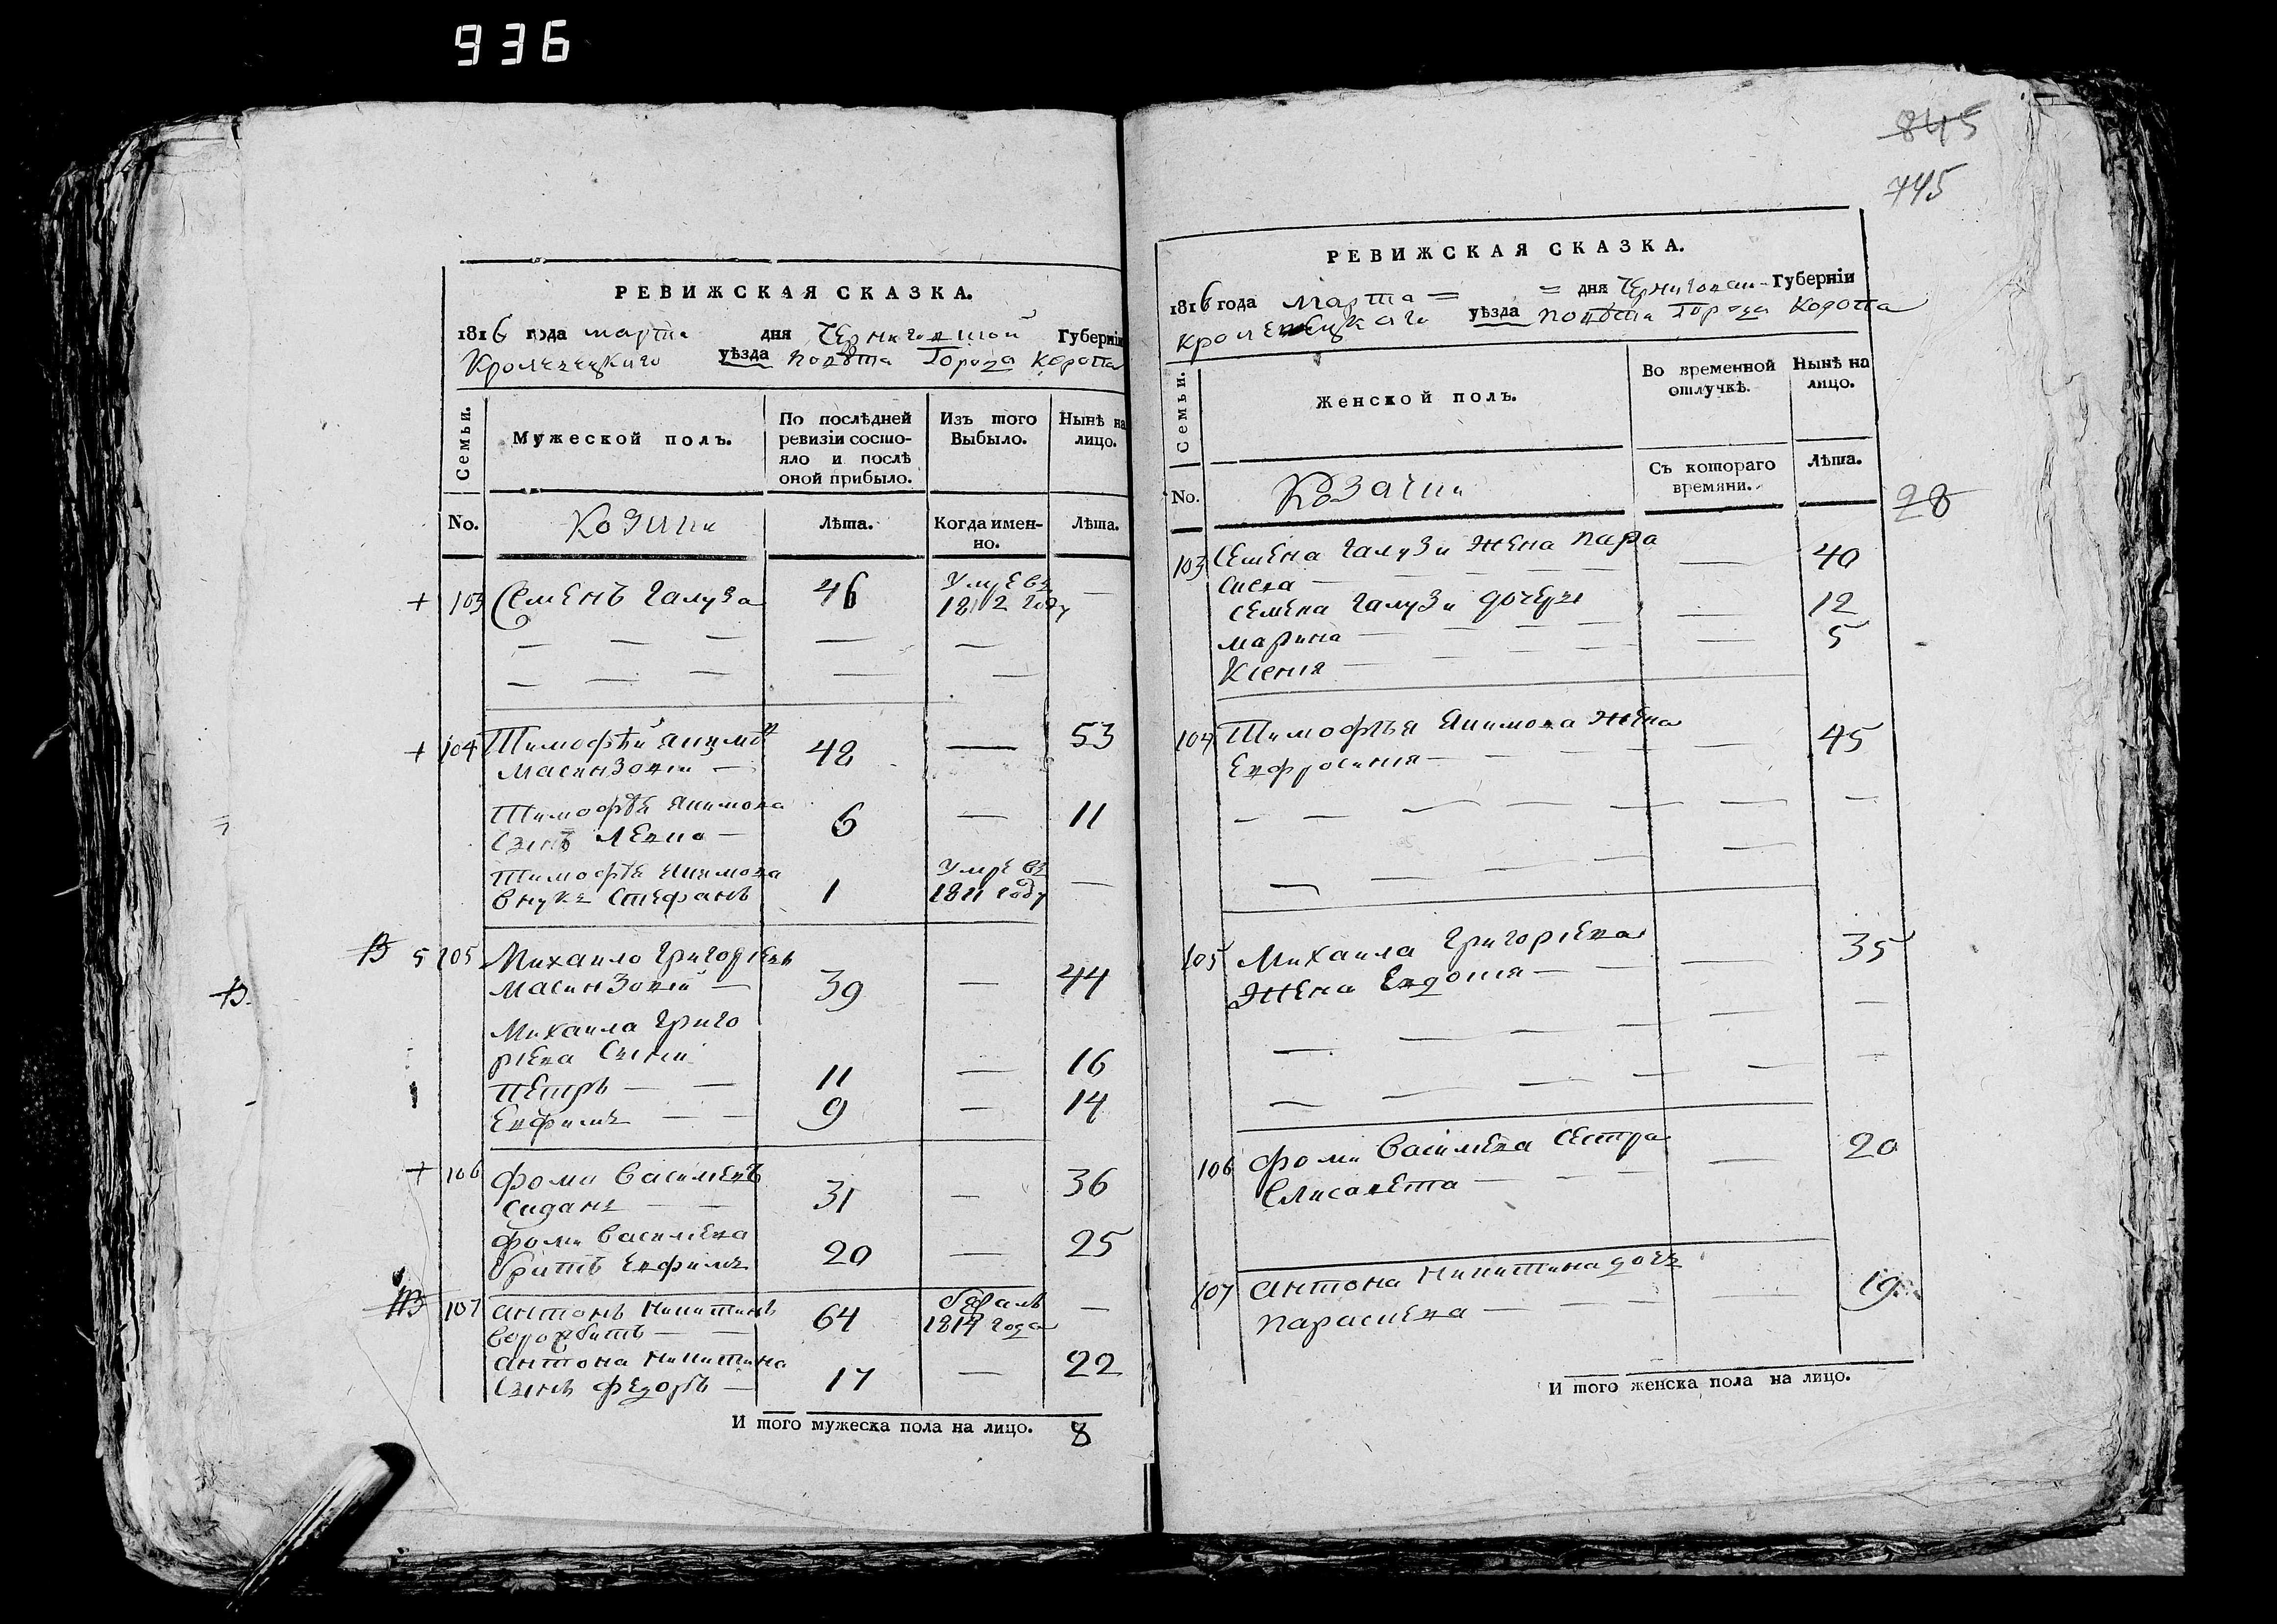 936
РЕВИЖСКАЯ СКАЗКА.
1816 года марта дня Черниговской Губерніи
Кролевецкаго уѣзда повѣта Города Коропа
Семьи.
Мужеской полъ.
По послѣдней ревизіи состояло и послѣ оной прибыло.
Изъ того Выбыло.
Нынѣ на лицо.
No.
Козаки
Лѣта.
Когда именно.
Лѣта.
+ 103 Семенъ Галуза 46 Умре въ —
1812 году
— — — — —
— — — — —
+ 104 Тимофѣй Якимовъ 42 — 53
—
Тимофѣя Якимова 6 — 11
Сынъ —
Тимофѣя Якимова 1 Умре въ —
внукъ Стефанъ 1811 году
В 5 105 Михайло Григоріевъ
39 — 44
В
Михаила Григо
ріева Сыны
Петръ — — 11 — 16
Евфимъ — — 9 — 14
+ 106 Фома Васильевъ
— — 31 — 36
Фомы Васильева
братъ Евфимъ 20 — 25
107 Антонъ Никитинъ 64 —
Ворожбитъ — — года
Антона Никитина
Сынъ Федоръ — 17 — 22
И того мужеска пола на лицо. 8
845
745
РЕВИЖСКАЯ СКАЗКА.
1816 года Марта = = дня Губерніи
Кролевецкаго уѣзда повѣта Города Коропа
Семьи.
Женской полъ.
Во временной отлучкѣ.
Нынѣ на лицо.
No.
Козачки
Съ котораго времяни.
Лѣта.
28
103 Семена Галузи жена Пара
скева — — — — — 40
Семена Галузи дочери
Марина — — — — — 12
Ксенія — — — — — 5
104 Тимофѣя Якимова жена
Евфросинія — — — — 45
— — — — — — — —
— — — — —
105 Михаила Григоріева
жена Евдокія — — — 35
— — — — —
— — — — —
106 Фомы Васильева сестра
Елисавета — — — — 20
107 Антона Никитина дочь
Параскева — — — — 19
И того женска пола на лицо.